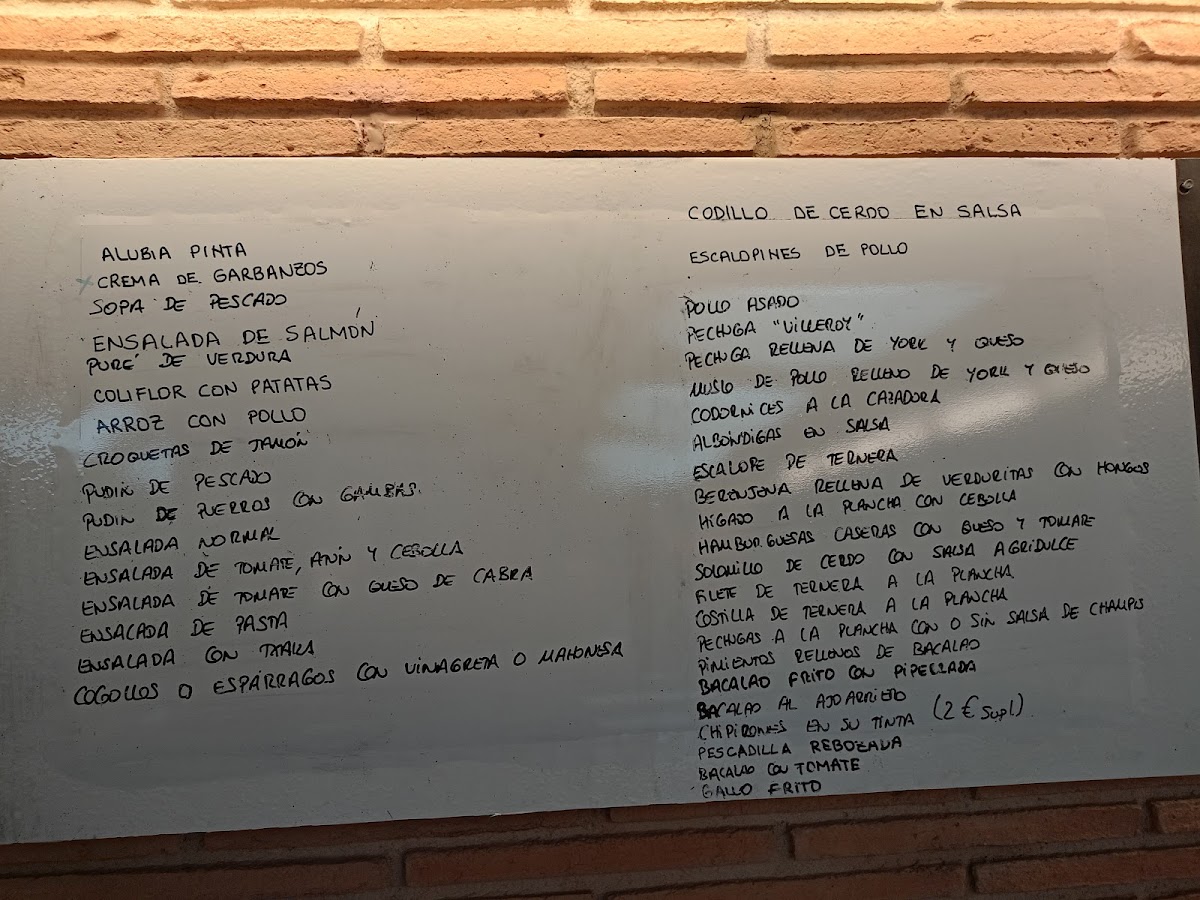 ALUBIA PINTA
CREMA DE GARBANZOS
SOPA DE PESCADO
ENSALADA DE SALMÓN
PURÉ DE VERDURA
COLIFLOR CON PATATAS
ARROZ CON POLLO
CROQUETAS DE JAMÓN
PUDIN DE PESCADO
PUDIN DE PUERROS CON GAMBAS
ENSALADA NORMAL
ENSALADA DE TOMATE, ATÚN Y CEBOLLA
ENSALADA DE TOMATE CON QUESO DE CABRA
ENSALADA DE PASTA
ENSALADA CON
COGOLLOS O ESPÁRRAGOS CON VINAGRETA O MAHONESA
CODILLO DE CERDO EN SALSA
ESCALOPINES DE POLLO
POLLO ASADO
PECHUGA "VILLEROY"
PECHUGA RELLENA DE YORK Y QUESO
MUSLO DE POLLO RELLENO DE YORK Y QUESO
CODORNICES A LA CAZADORA
ALBÓNDIGAS EN SALSA
ESCALOPE DE TERNERA
BERENJENA RELLENA DE VERDURITAS CON HONGOS
HÍGADO A LA PLANCHA CON CEBOLLA
HAMBURGUESAS CASERAS CON QUESO Y TOMATE
SOLOMILLO DE CERDO CON SALSA AGRIDULCE
FILETE DE TERNERA A LA PLANCHA
COSTILLA DE TERNERA A LA PLANCHA
PECHUGAS A LA PLANCHA CON O SIN SALSA DE CHAMPIS
PIMIENTOS RELLENOS DE BACALAO
BACALAO FRITO CON PIPERRADA
BACALAO AL AJOARRIERO
CHIPIRONES EN SU TINTA (2 € Supl)
PESCADILLA REBOZADA
BACALAO CON TOMATE
GALLO FRITO